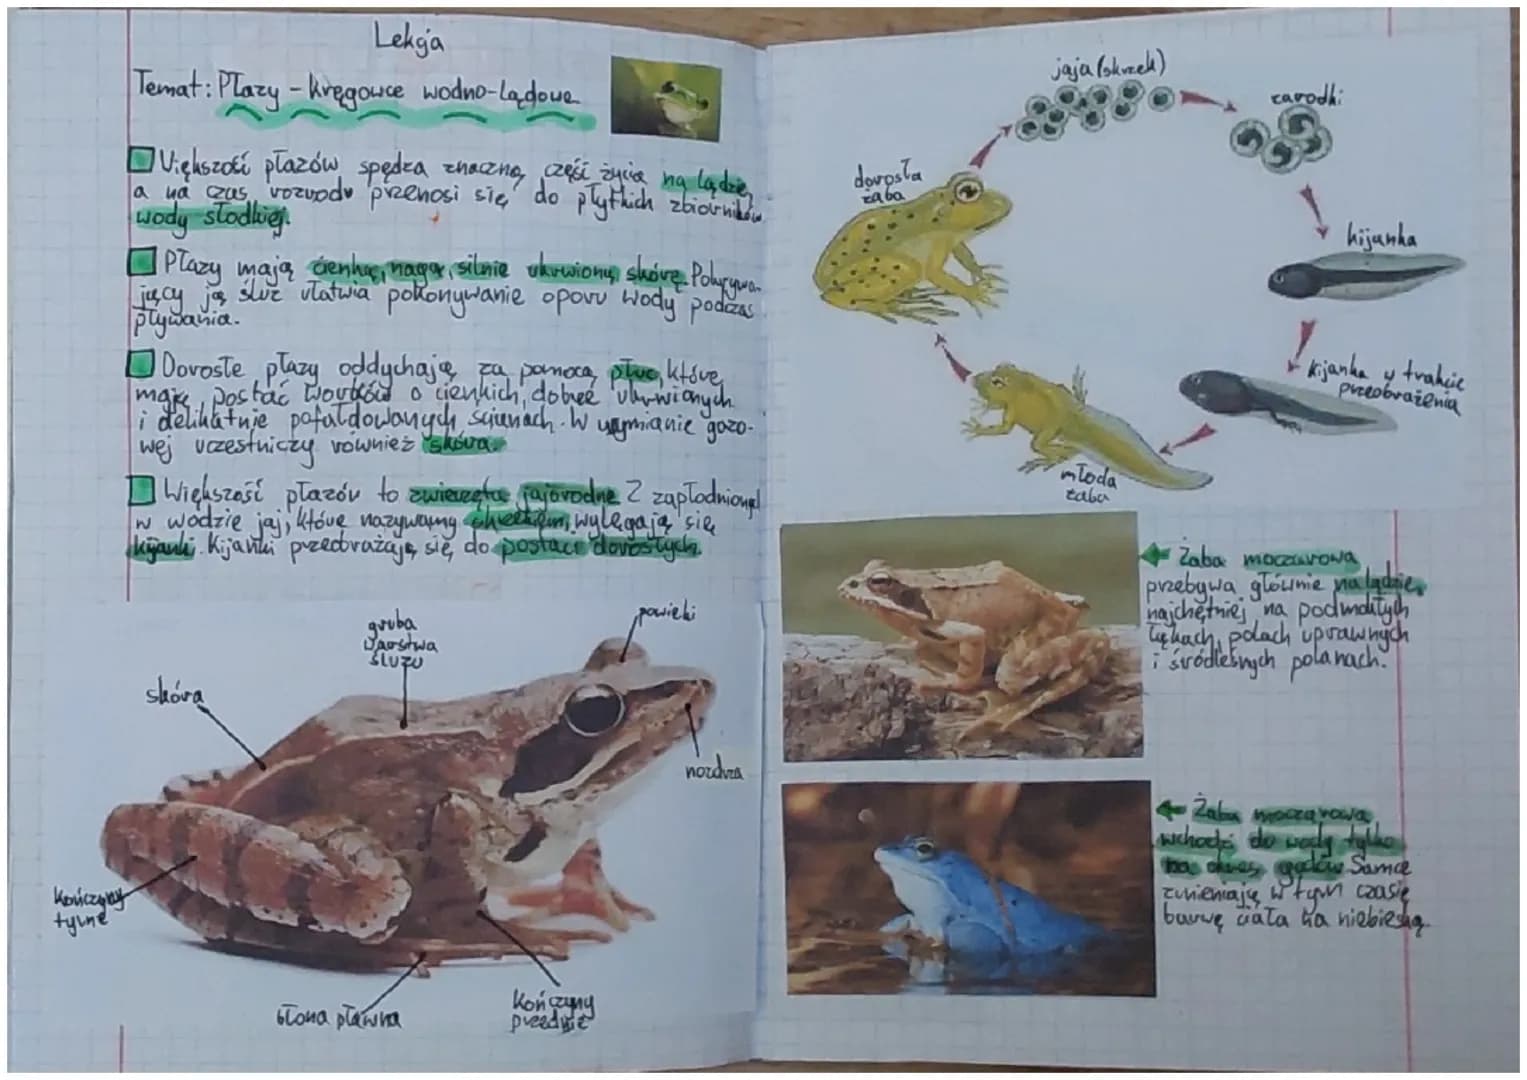 Lekcja
Temat: Płazy – kręgowce wodno-lądowe
Większość płazów spędza znaczną część życia na lądzie,
a na czas rozrodu przenosi się do płytkich zbiorników
wody słodkiej.
Płazy mają cienką, nagą, silnie ukrwioną skórę. Pokrywa-
jący ją śluz ułatwia pokonywanie oporu wody podczas
pływania.
Dorosłe płazy oddychają za pomocą płuc, które
mają postać worków o cienkich, dobrze ukrwionych
i delikatnie pofałdowanych ścianach. W wymianie gazo-
wej uczestniczy również skóra.
Większość płazów to zwierzęta jajorodne. Z zapłodnionych
w wodzie jaj, które nazywamy skrzekiem, wylęgają się
kijanki. Kijanki przeobrażają się do postaci dorosłych.
gruba
warstwa
śluzu
powieki
skóra
nozdrza
kończyny
tylne
błona pławna
kończyny
przednie
jaja (skrzek)
zarodki
dorosła
żaba
kijanka
kijanka w trakcie
przeobrażenia
młoda
żaba
Żaba moczarowa
przebywa głównie na lądzie,
najchętniej na podmokłych
łąkach, polach uprawnych
i śródleśnych polanach.
Żaba moczarowa
wchodzi do wody tylko
na okres godów. Samce
zmieniają w tym czasie
barwę ciała na niebieską.